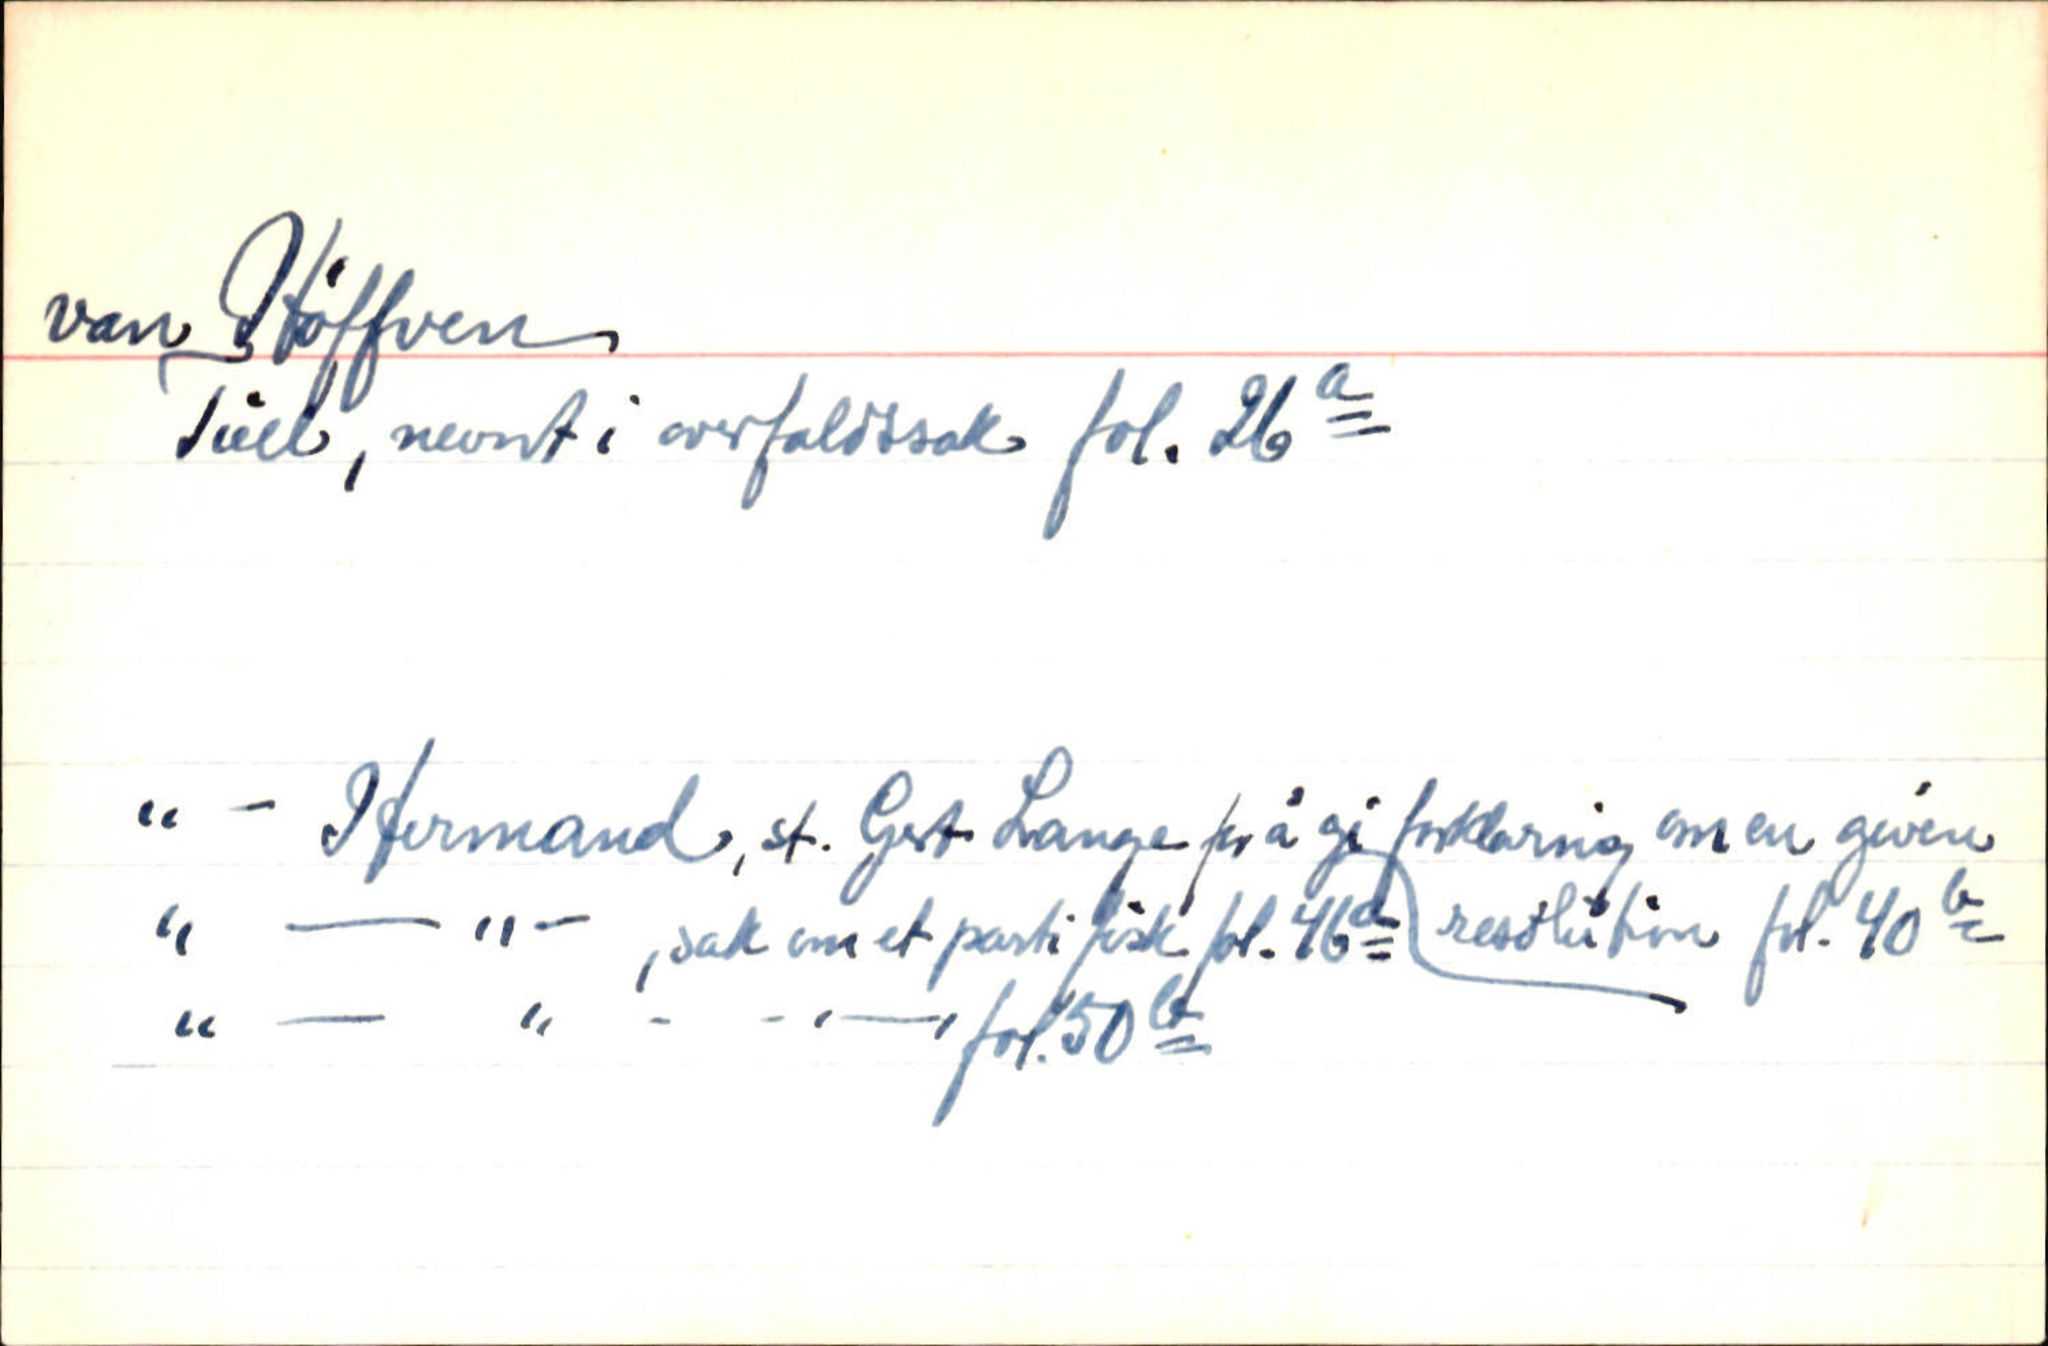 van Höffven
Tiell, nevnt i overfaldssak fol. 26 a
" - Hermand, st. Gert Lange for å gi forklaring om en given
" — " - , sak om et parti fisk fol. 46 a resolution fol. 40 b
" — " - - " — " fol. 50 b